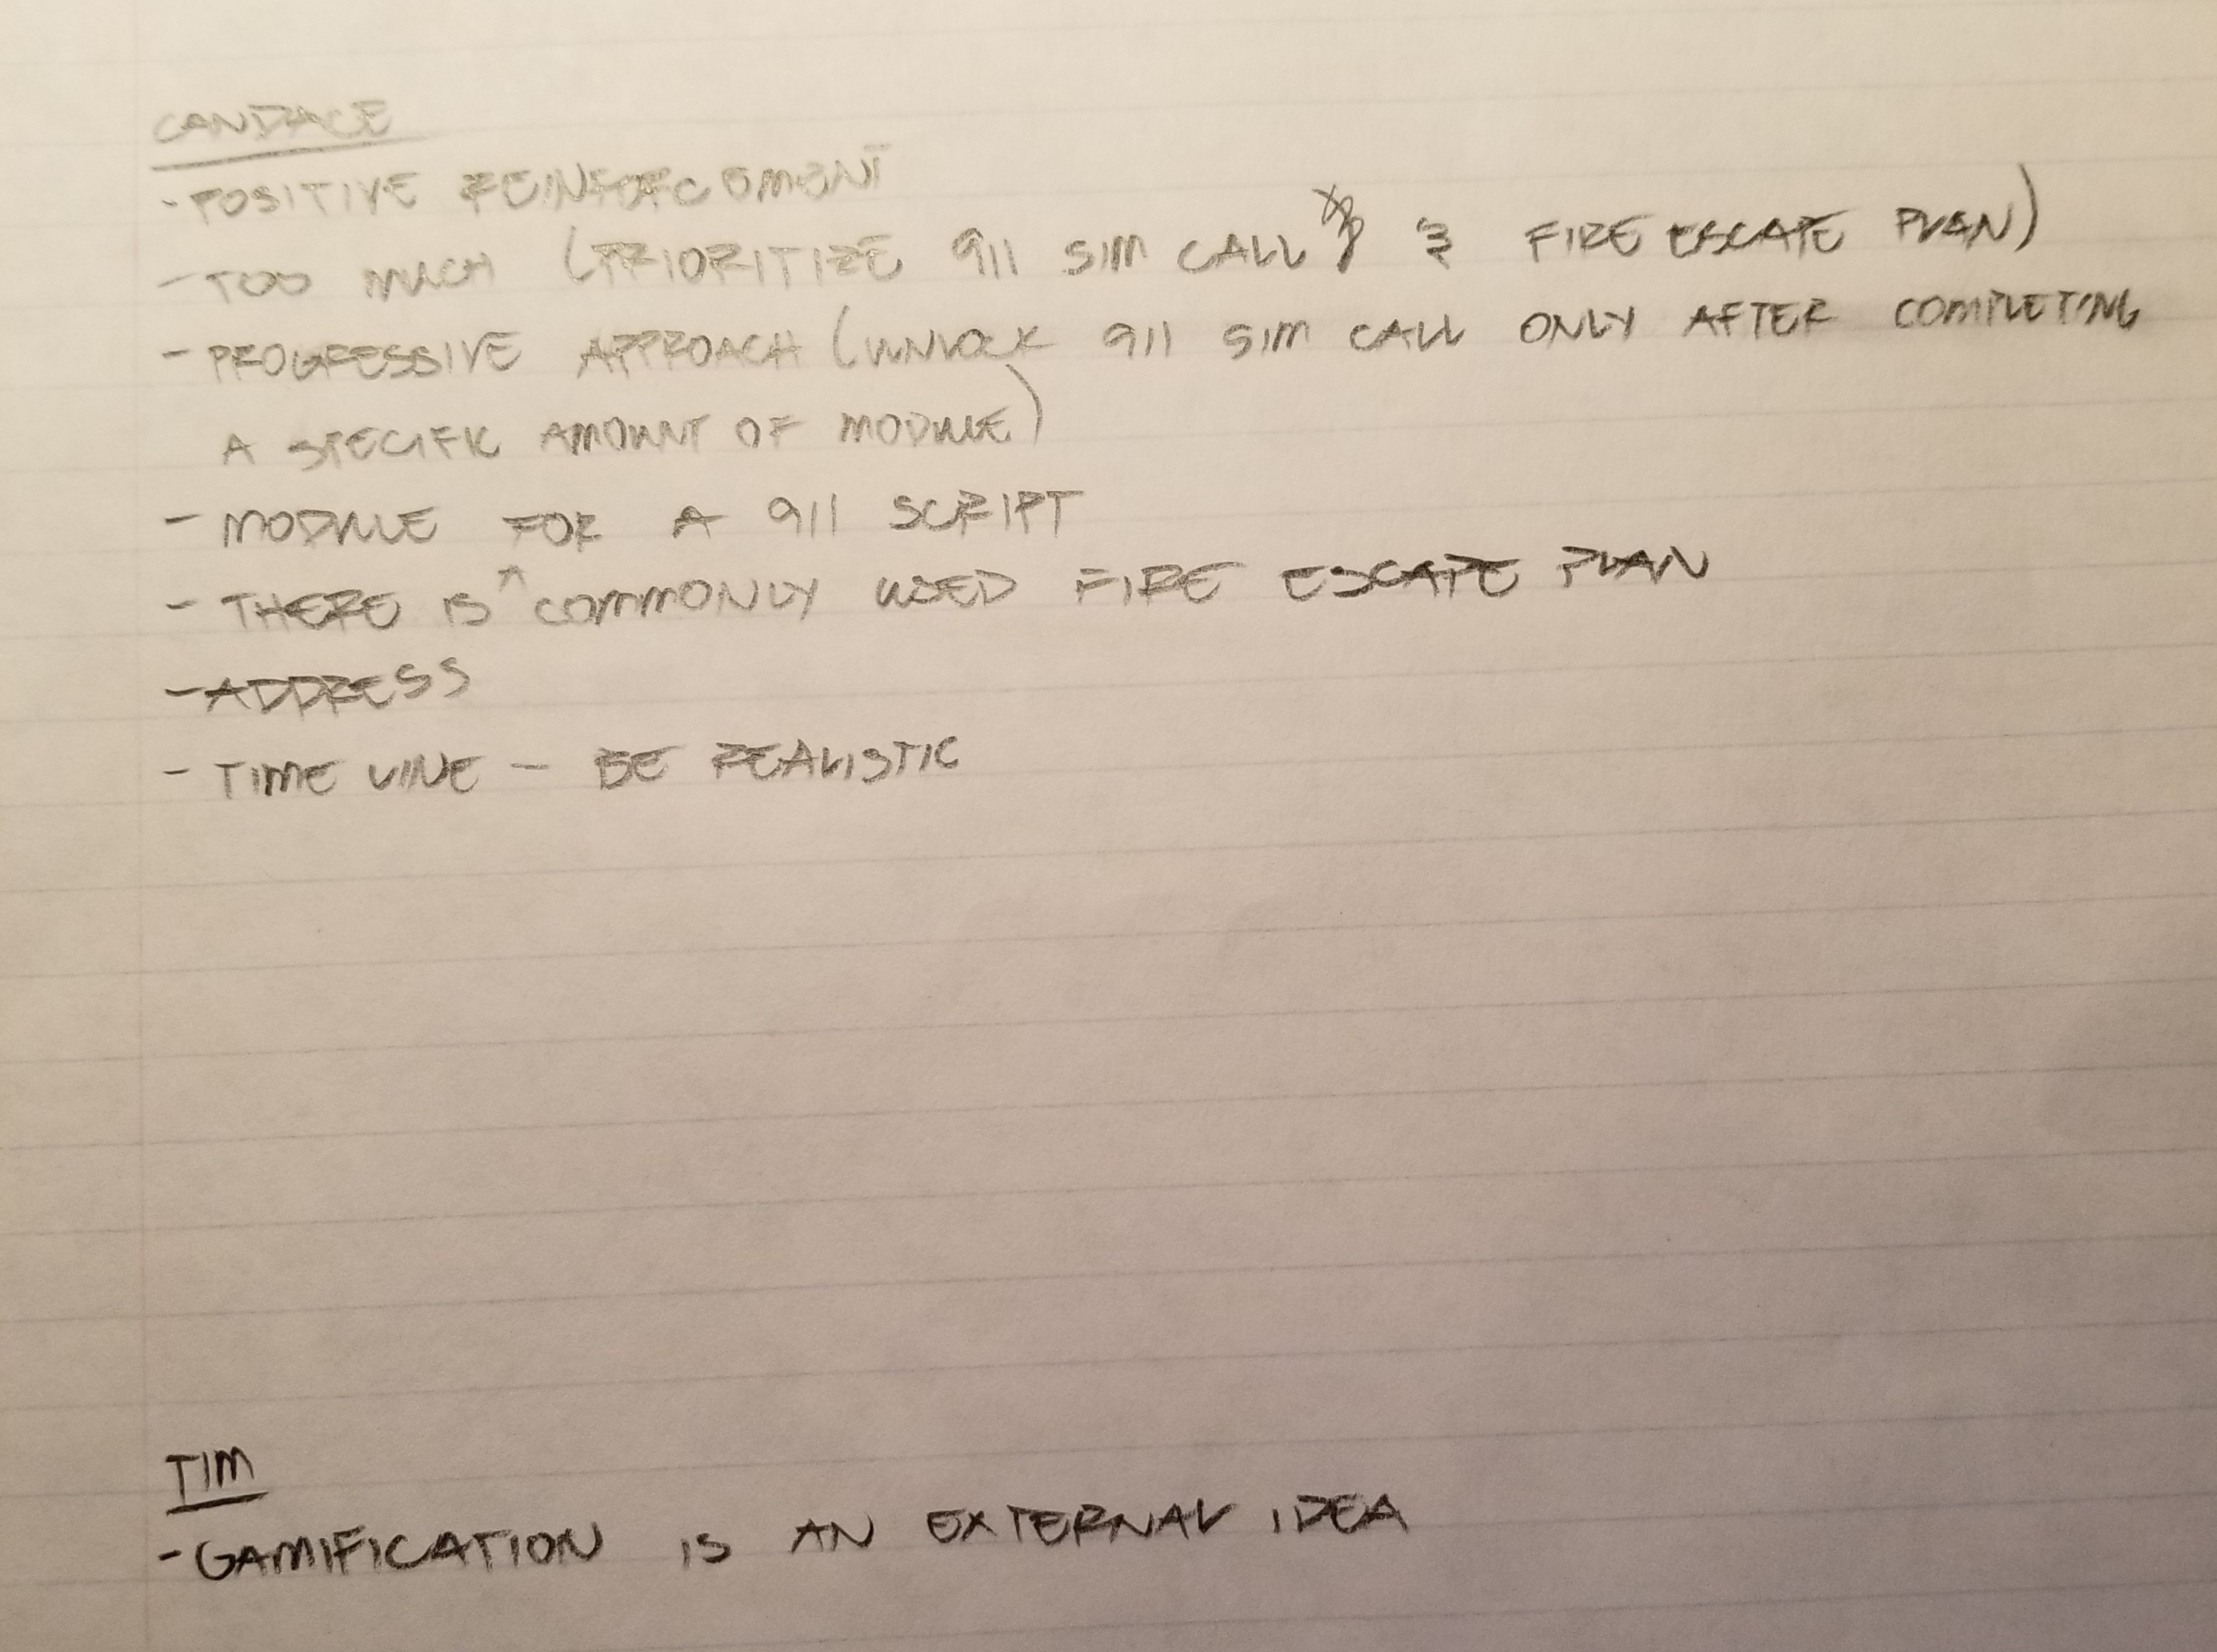 CANDACE
- POSITIVE REINFORCEMENT
- TOO MUCH (PRIORITIZE 911 SIM CALL & FIRE ESCAPE PLAN)
- PROGRESSIVE APPROACH (UNLOCK 911 SIM CALL ONLY AFTER COMPLETING
A SPECIFIC AMOUNT OF MODULE)
- MODULE FOR A 911 SCRIPT
- THERE IS ^ COMMONLY USED FIRE ESCAPE PLAN
- ADDRESS
- TIME LINE - BE REALISTIC
TIM
- GAMIFICATION IS AN EXTERNAL IDEA